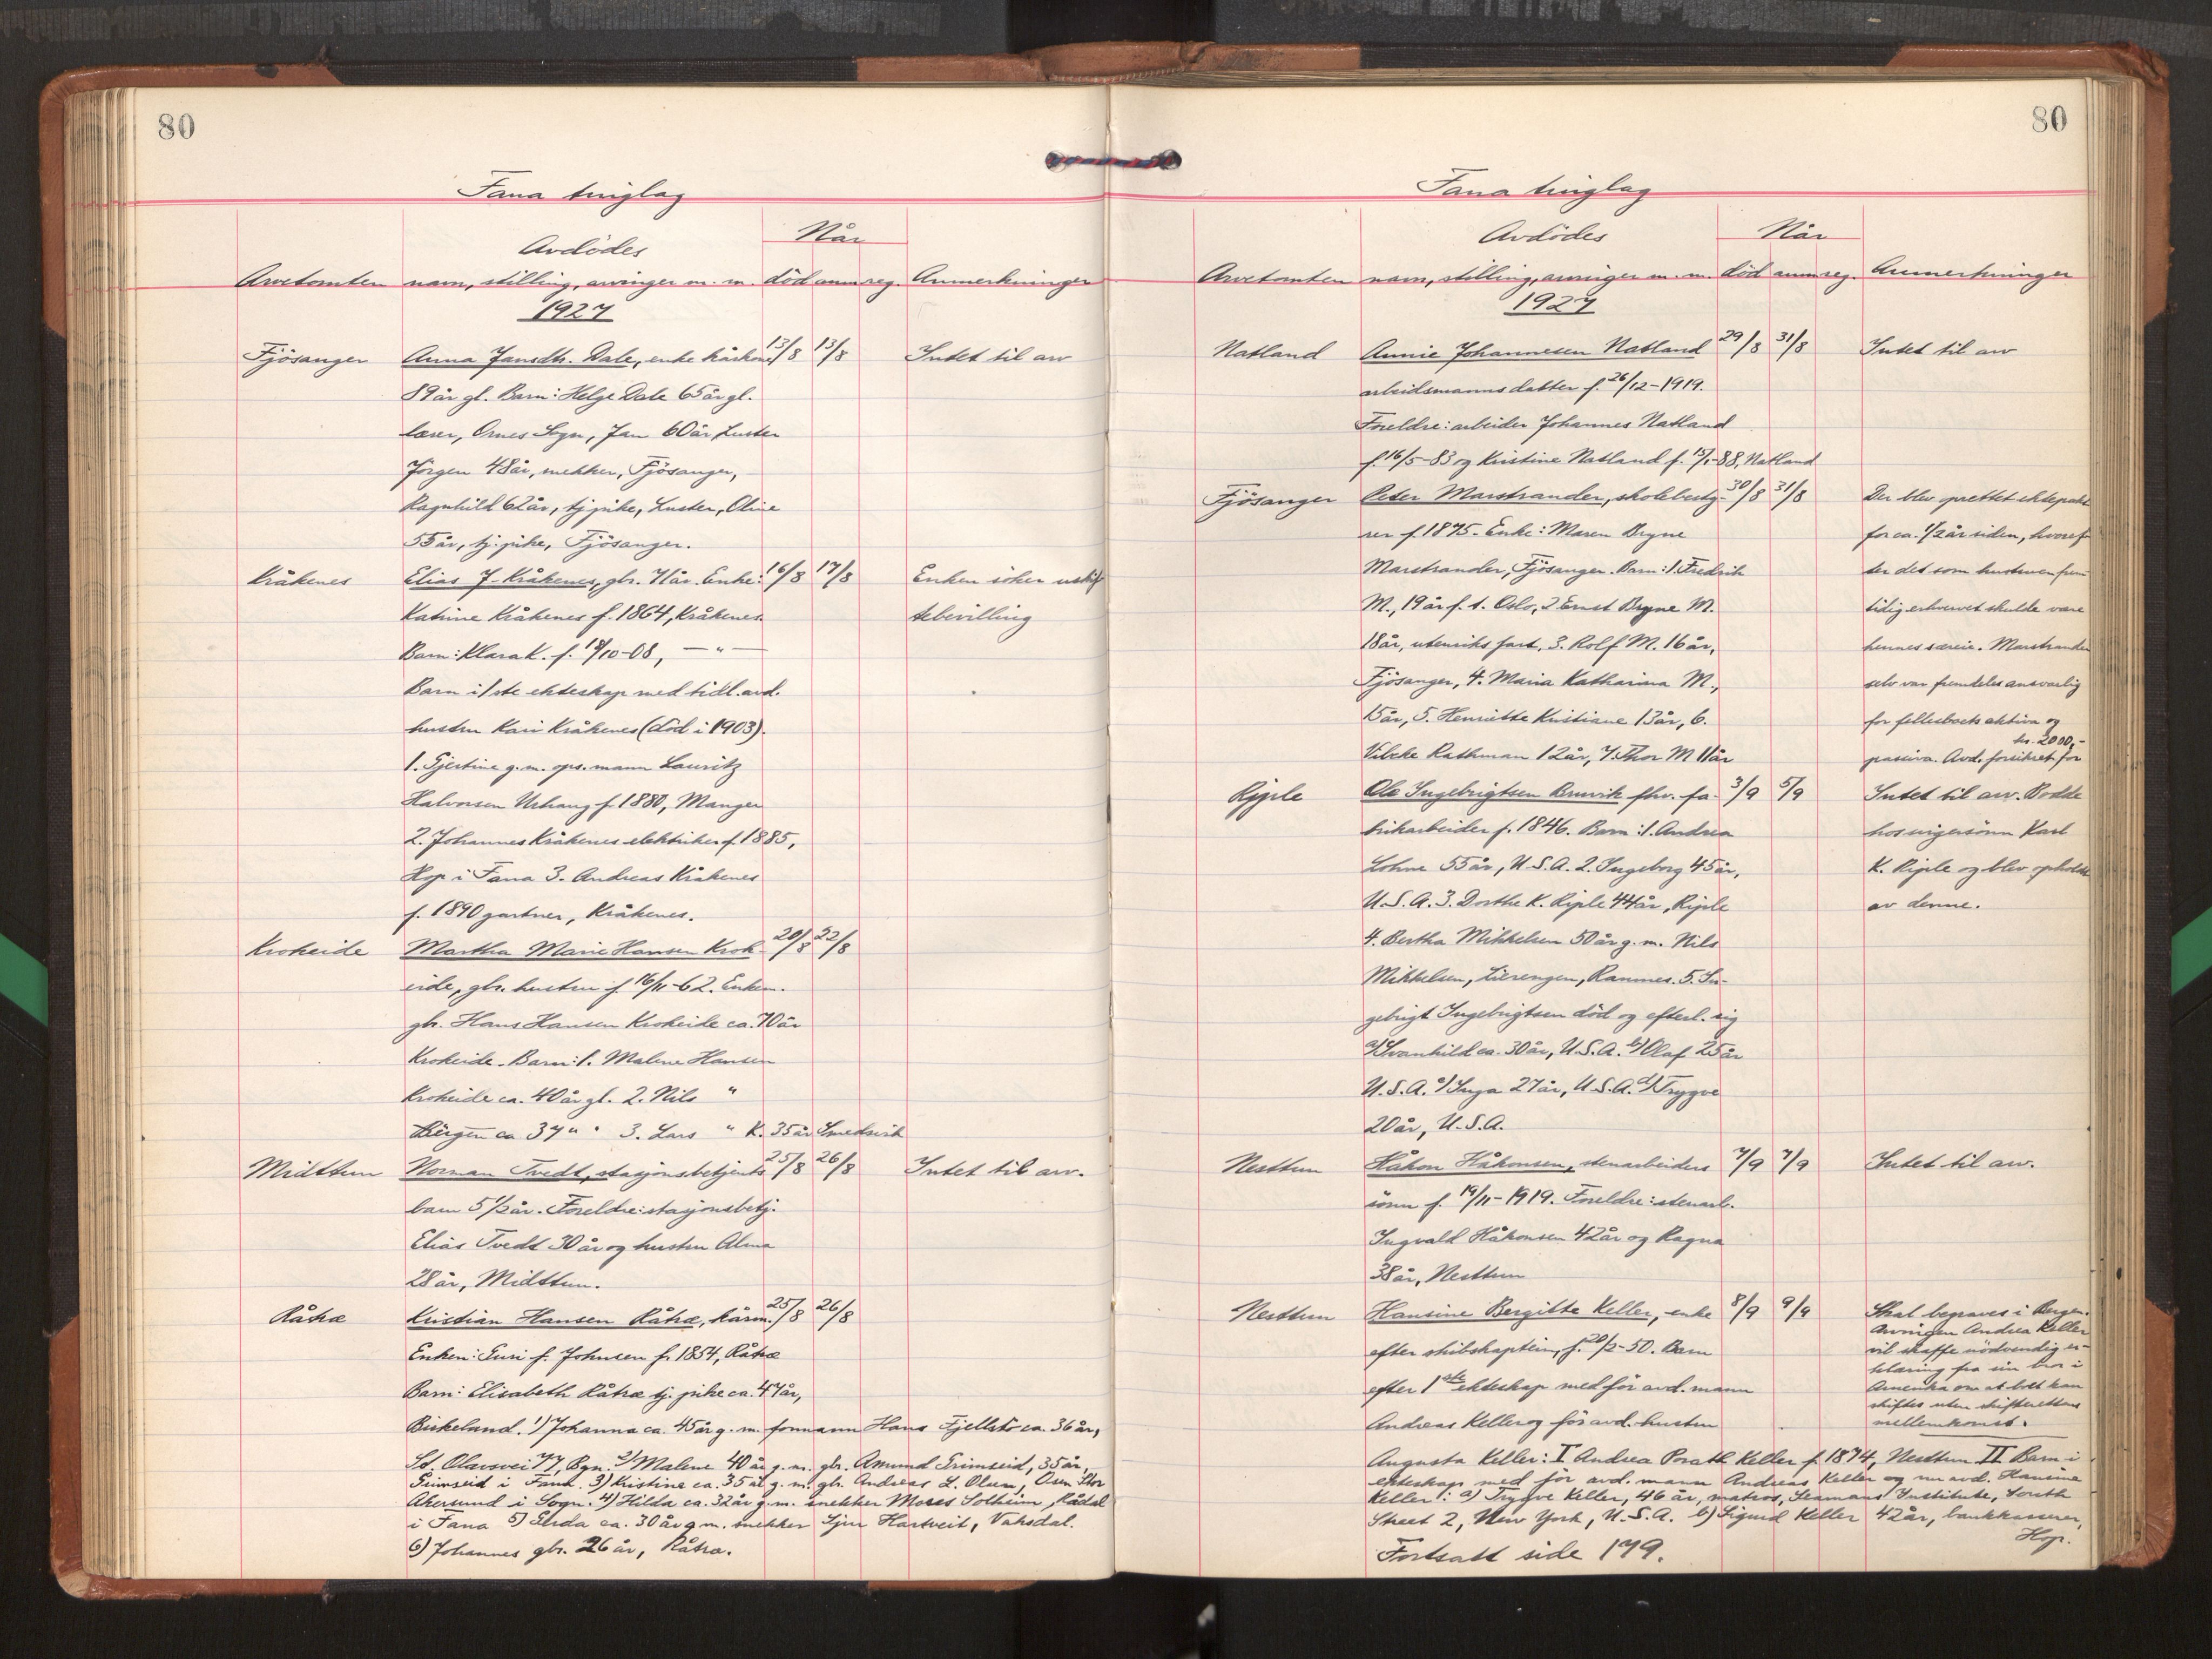 80
Fana tinglag
Avdödes
Når
Arvetomten navn, stilling, arvinger m. m. död anm reg. Anmerkninger
1927
Fjösanger Anna Jansdtr. Dale, enke kårkone 13/8 13/8 Intet til arv
89 år gl. Barn: Helge Dale 65 år gl.
lærer, Ornes Sogn, Jan 60 år, Luster
Jörgen 48 år, snekker, Fjösanger,
Ragnhild 62 år, tj. pike, Luster, Oline
55 år, tj. pike, Fjösanger.
Kråkenes Elias J. Kråkenes, gbr. 71 år. Enke: 16/8 17/8 Enken söker uskif
Katrine Kråkenes f. 1864, Kråkenes. tebevilling
Barn: Klara K. f. /10-08, — " —
Barn i 1ste ekteskap med tidl. avd.
hustru Kari Kråkenes (död i 1903).
1. Gjertine g. m. ops. mann Lauritz
Halvorsen Urhaug f. 1880, Manger
2. Johannes Kråkenes elektriker f. 1885,
Hop i Fana 3. Andreas Kråkenes
f. 1890 gartner, Kråkenes.
Krokeide Martha Marie Hansen Krok- 20/8 22/8
eide, gbr. hustru f. 16/11-62. Enkem.
gbr. Hans Hansen Krokeide ca. 70 år
Krokeide. Barn: 1. Malene Hansen
Krokeide ca. 40 år gl. 2. Nils "
Bergen ca 37 " " 3. Lars " K. 35 år Smedsvik
Midttun Norman Tvedt, stasjonsbetjents 25/8 26/8 Intet til arv.
barn 5 1/2 år. Foreldre: stasjonsbetj.
Elias Tvedt 30 år og hustru Alma
28 år, Midttun.
Råtræ Kristian Hansen Råtræ, kårm. 25/8 26/8
Enken: Guri f. Johnsen f. 1854, Råtræ
Barn: Elisabeth Råtræ tj. pike ca. 47 år,
Birkeland. 1) Johanna ca. 45 år g. m. formann Hans Fjellstö ca. 36 år,
St. Olavsvei 77, Bgn. 2) Malene 40 år g. m. gbr. Amund Grimseid, 35 år,
Grimseid i Fana. 3) Kristine ca. 35 år g. m. gbr. Andreas L. Olsen, Osen Stor
Akersund i Sogn. 4) Hilda ca. 32 år g. m. snekker Moses Solheim, Rådal
i Fana 5) Gerda ca. 30 år g. m. snekker Sjur Hartveit, Vaksdal.
6) Johannes gbr. 26 år, Råtræ.
80
Fana tinglag
Avdödes
Når
Arvetomten navn, stilling, arvinger m. m. död anm reg. Anmerkninger
1927
Natland Annie Johannesen Natland 29/8 31/8 Intet til arv
arbeidsmanns datter f. 26/12-1919.
Foreldre: arbeider Johannes Natland
f. 16/5-83 og Kristine Natland f. 15/1-88, Natland
Fjösanger Peter Marstrander, skolebesty- 30/8 31/8 Der blev oprettet ektepakt
rer f. 1875. Enke: Maren Bryne for ca. 1/2 år siden, hvoref
Marstrander, Fjösanger. Barn: 1. Fredrik ter det som hustruen frem
M., 19 år f. t. Oslo, 2 Ernst Bryne M. tidig erhvervet skulde være
18 år, utenriks fart, 3. Rolf M. 16 år, hennes særeie. Marstrander
Fjösanger, 4. Maria Katharina M., selv var fremdeles ansvarlig
15 år, 5. Henriette Kristiane 13 år, 6. for fellesboets aktiva og
Vibeke Rathman 12 år, 7. Thor M 11 år passiva. Avd. forsikret for kr. 2000,-
Riple Ole Ingebrigtsen Bruvik fhv. fa- 3/9 5/9 Intet til arv. Bodde
brikarbeider f. 1846. Barn: 1. Andrea hos svigersönn Karl
Lohne 55 år, U.S.A. 2. Ingeborg 45 år, K. Riple og blev opholdt
U.S.A. 3. Dorthe K. Riple 44 år, Riple av denne.
4. Bertha Mikkelsen 50 år g. m. Nils
Mikkelsen, Lierengen, Rannes. 5. In-
gebrigt Ingebrigtsen död og efterl. sig
a) Svanhild ca. 30 år, U.S.A. b) Olaf 25 år
U.S.A. c) Inga 27 år, U.S.A. d) Trygve
20 år, U.S.A.
Nesttun Håkon Håkonsen, stenarbeiders 7/9 7/9 Intet til arv.
sönn f. 19/11-1919. Foreldre: stenarb.
Ingvald Håkonsen 42 år og Ragna
38 år, Nesttun
Nesttun Hansine Bergitte Keller, enke 8/9 9/9 Skal begraves i Bergen.
efter skibskaptein, f. 20/2-50. Barn Arvingen Andrea Keller
vil skaffe nödvendig er-
klæring fra sin bror i
efter 1ste ekteskap med för avd. mann Amerika om at boet kan
skiftes uten skifterettens
Andreas Keller og för avd. hustru mellemkomst.
Augusta Keller: I Andrea Porath Keller f. 1874, Nesttun II Barn i
ekteskap med för avd. mann Andreas Keller og nu avd. Hansine
Keller: a) Trygve Keller, 46 år, matros, Seamans Institute, South
Street 2, New York, U.S.A. b) Sigurd Keller 42 år, bankkasserer,
Hop.
Fortsatt side 179.